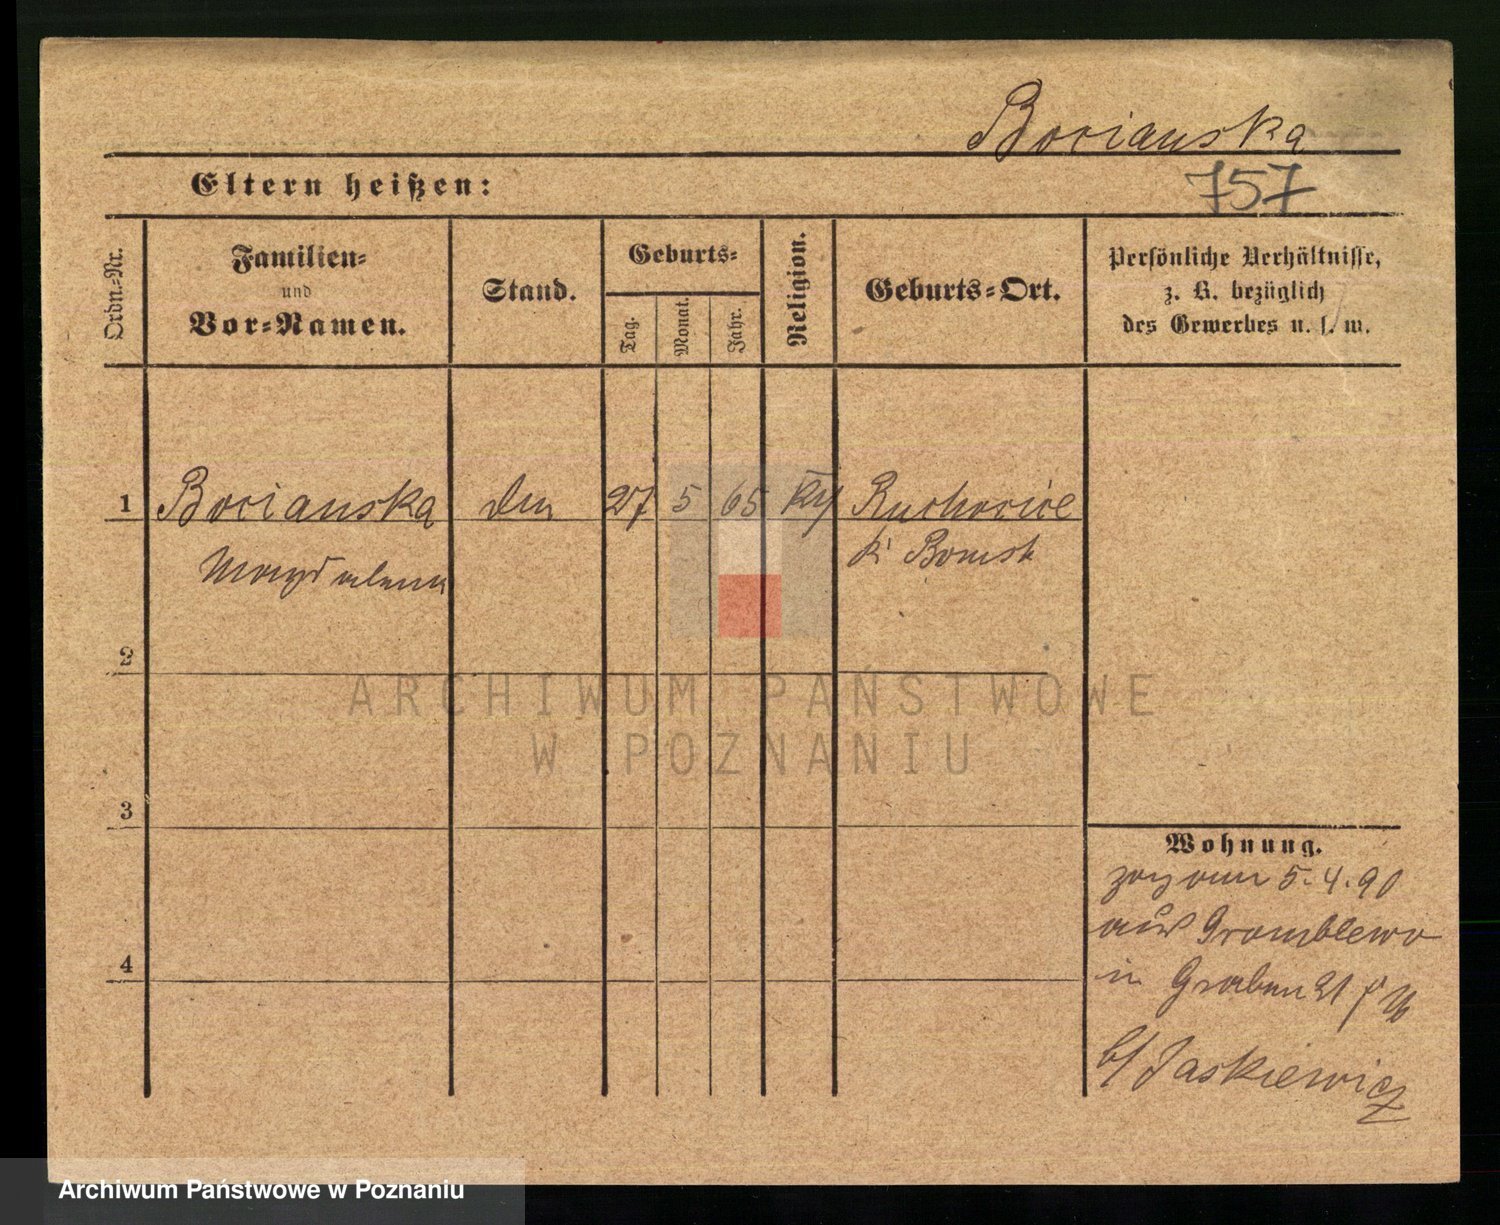 Bocianska
Eltern heißen:
757
Ordn.-Nr.
Familien-
und
Vor-Namen.
Stand.
Geburts-
Tag.
Monat.
Jahr.
Religion.
Geburts-Ort.
Persönliche Verhältnisse,
z. B. bezüglich
des Gewerbes u. s. w.
1 Bocianska 27 5 65 Ruchocice
Magdalena k. Bomst
2
3
4
Wohnung.
zog am 5.4.90
aus Gromblewo
in Graben 21
b/ Jaskiewicz
ARCHIWUM PAŃSTWOWE
W POZNANIU
Archiwum Państwowe w Poznaniu